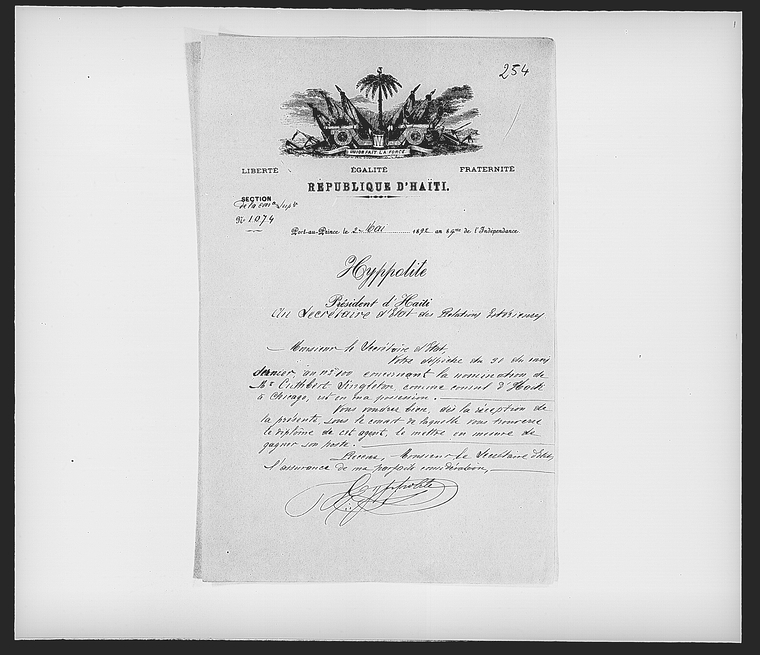 254
L'UNION FAIT LA FORCE.
LIBERTÉ ÉGALITÉ FRATERNITÉ
RÉPUBLIQUE D'HAÏTI.
SECTION
de la
No 1074
Port-au-Prince le 2 Mai 1892 an 89me de l'Indépendance.
Hyppolite
Président d'Haïti
Au Secrétaire d'Etat des Relations Extérieures
Monsieur le Secrétaire d'Etat,
Votre dépêche du 30 du mois
dernier, au No concernant la nomination de
Mr Cuthbert Singleton, comme consul d'Haïti
à Chicago, est en ma possession.
Vous voudrez bien, dès la réception de
la présente, sous le couvert de laquelle vous trouverez
le diplôme de cet agent, le mettre en mesure de
gagner son poste.
Recevez, Monsieur le Secrétaire d'Etat,
l'assurance de ma parfaite considération,
Hyppolite